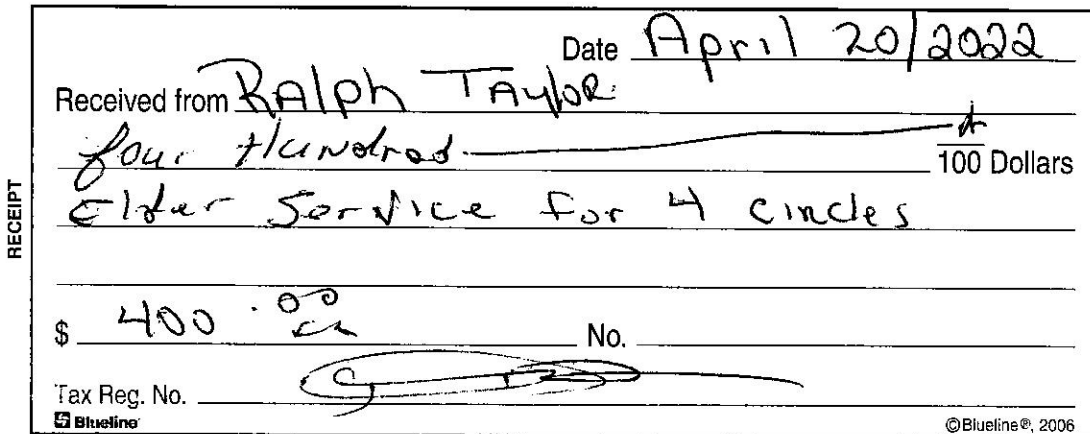 Date April 20/2022
Received from RAlph TAylor
four Hundred
100 Dollars
Elder Service for 4 circles
$ 400.00 No.
Tax Reg. No.
Blueline ©Blueline®, 2006
RECEIPT